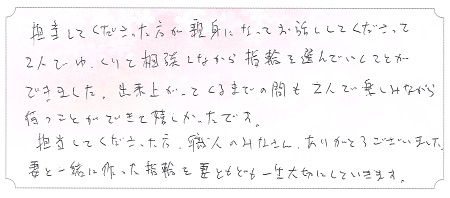 担当してくださった方が親身になってお話ししてくださって
2人でゆっくりと相談しながら指輪を選んでいくことが
できました。出来上がってくるまでの間も2人で楽しみながら
待つことができて嬉しかったです。
担当してくださった方、職人のみなさん、ありがとうございました。
妻と一緒に作った指輪を妻ともども一生大切にしていきます。